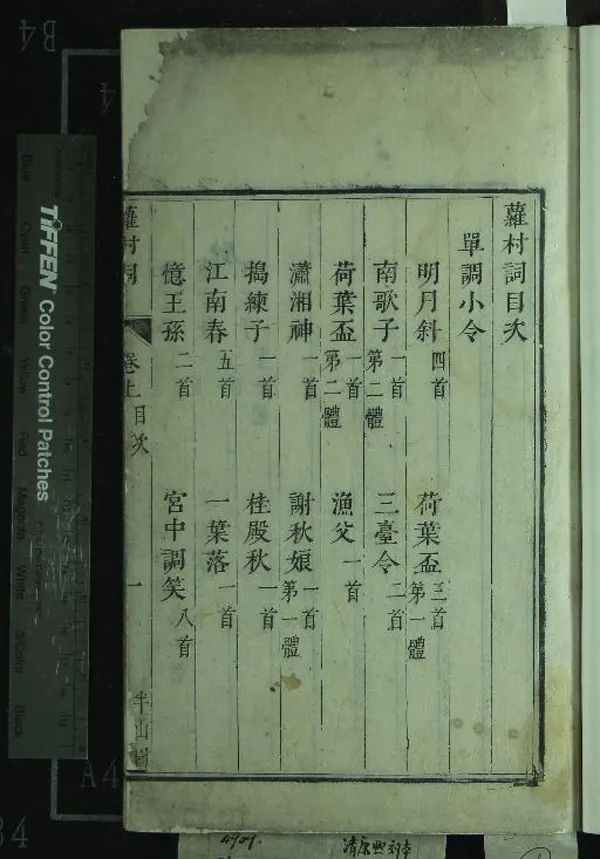 蘿村詞目次
單調小令
明月斜 四首 荷葉盃 三首 第一體
南歌子 一首 第二體 三臺令 二首
荷葉盃 一首 第二體 漁父 一首
瀟湘神 一首 謝秋娘 一首 第一體
搗練子 一首 桂殿秋 一首
江南春 五首 一葉落 一首
憶王孫 二首 宮中調笑 八首
蘿村詞 卷上 目次 一
TIFFEN Color Control Patches
Blue Cyan Green Yellow Red Magenta White 3/Color Black
B4
4
A4
84
4909.
清康熙刻本